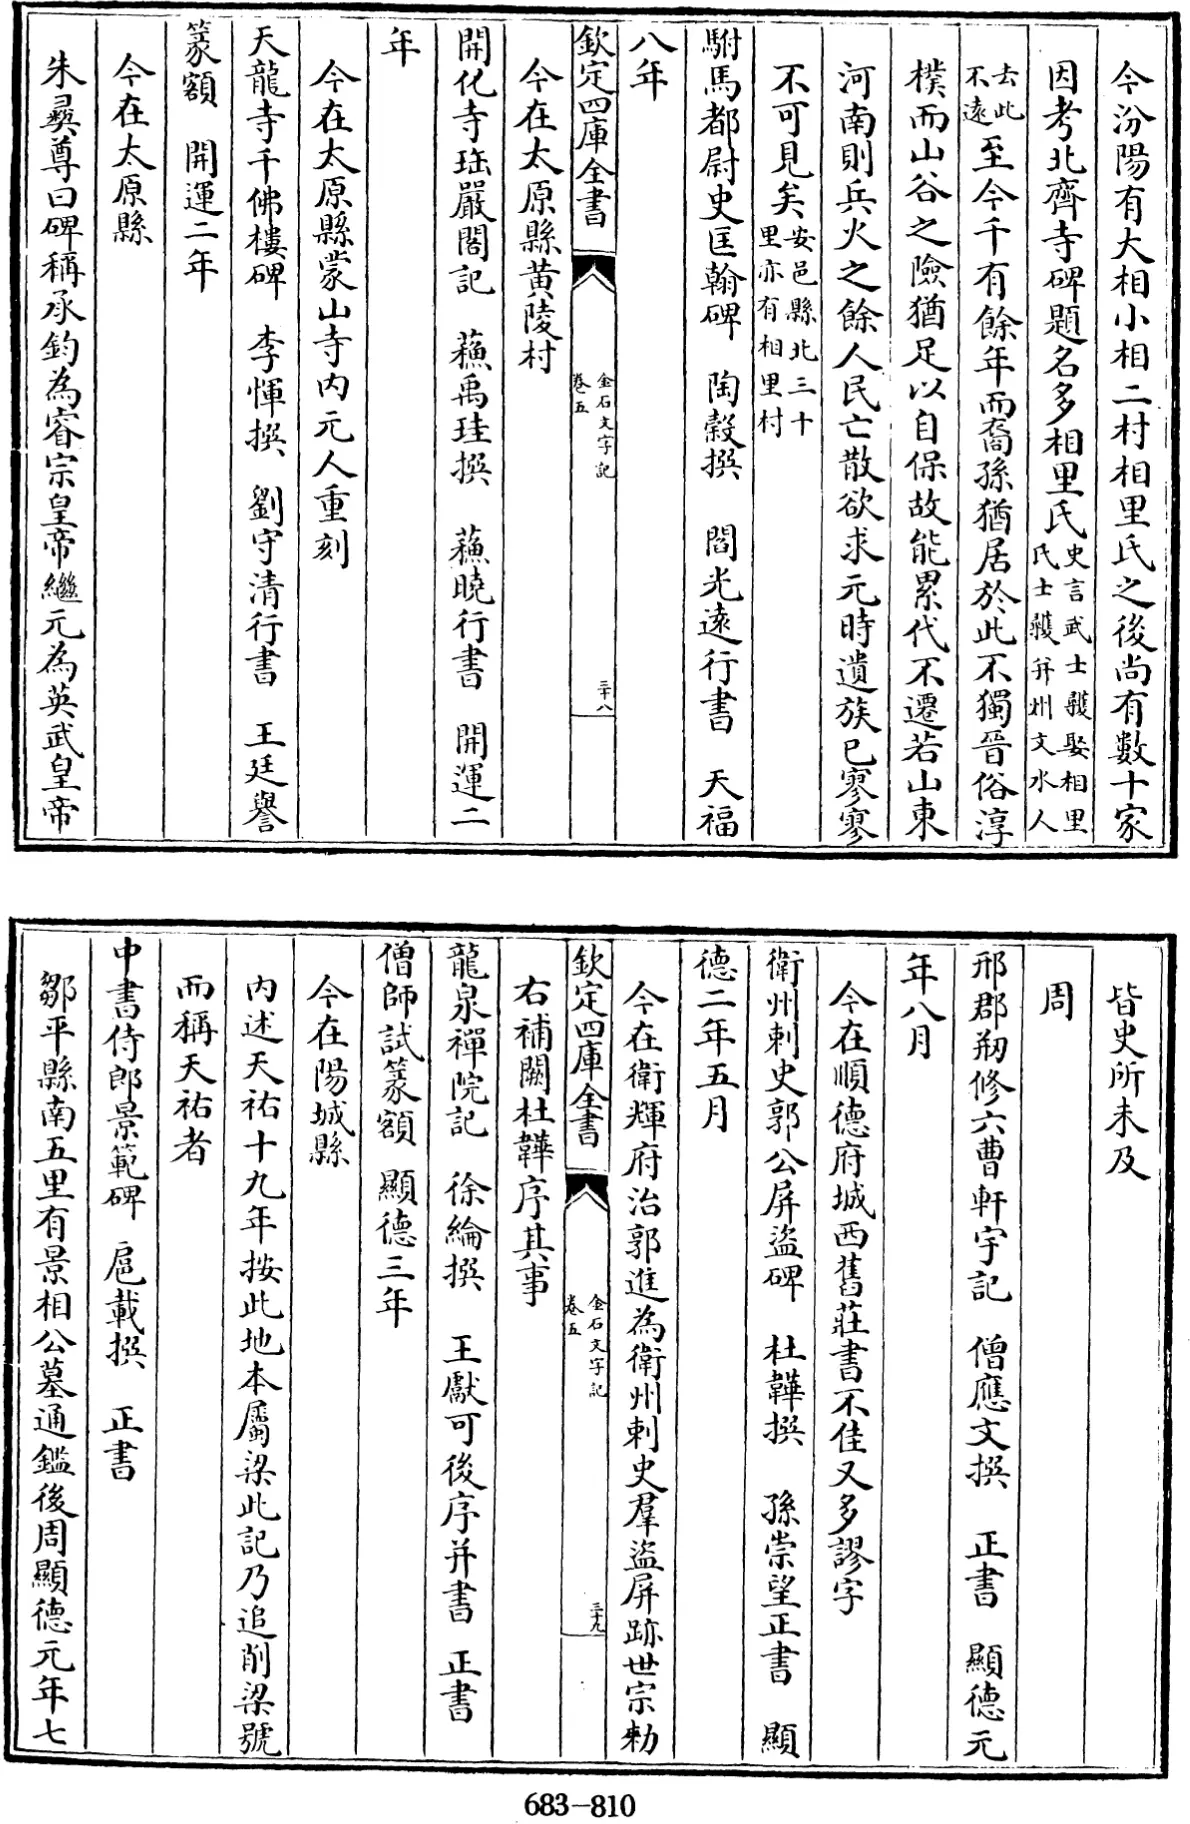 今汾陽有大相小相二村相里氏之後尚有數十家
因考北齊寺碑題名多相里氏史言武士彠娶相里氏士彠并州文水人
去此不遠至今千有餘年而裔孫猶居於此不獨晉俗淳
樸而山谷之險猶足以自保故能累代不遷若山東
河南則兵火之餘人民亡散欲求元時遺族已寥寥
不可見矣安邑縣北三十里亦有相里村
駙馬都尉史匡翰碑 陶穀撰 閻光遠行書 天福
八年
欽定四庫全書 金石文字記 卷五 三十八
今在太原縣黄陵村
開化寺瑶嚴閣記 蘓禹珪撰 蘓曉行書 開運二
年
今在太原縣蒙山寺内元人重刻
天龍寺千佛樓碑 李惲撰 劉守清行書 王廷譽
篆額 開運二年
今在太原縣
朱彝尊曰碑稱承鈞為睿宗皇帝繼元為英武皇帝
皆史所未及
周
邢郡刱修六曹軒宇記 僧應文撰 正書 顯德元
年八月
今在順德府城西舊莊書不佳又多謬字
衛州刺史郭公屏盜碑 杜韡撰 孫崇望正書 顯
德二年五月
今在衛輝府治郭進為衛州刺史羣盜屏跡世宗勑
欽定四庫全書 金石文字記 卷五 三十九
右補闕杜韡序其事
龍泉禪院記 徐綸撰 王獻可後序并書 正書
僧師試篆額 顯德三年
今在陽城縣
内述天祐十九年按此地本屬梁此記乃追削梁號
而稱天祐者
中書侍郎景範碑 扈載撰 正書
鄒平縣南五里有景相公墓通鑑後周顯德元年七
683-810